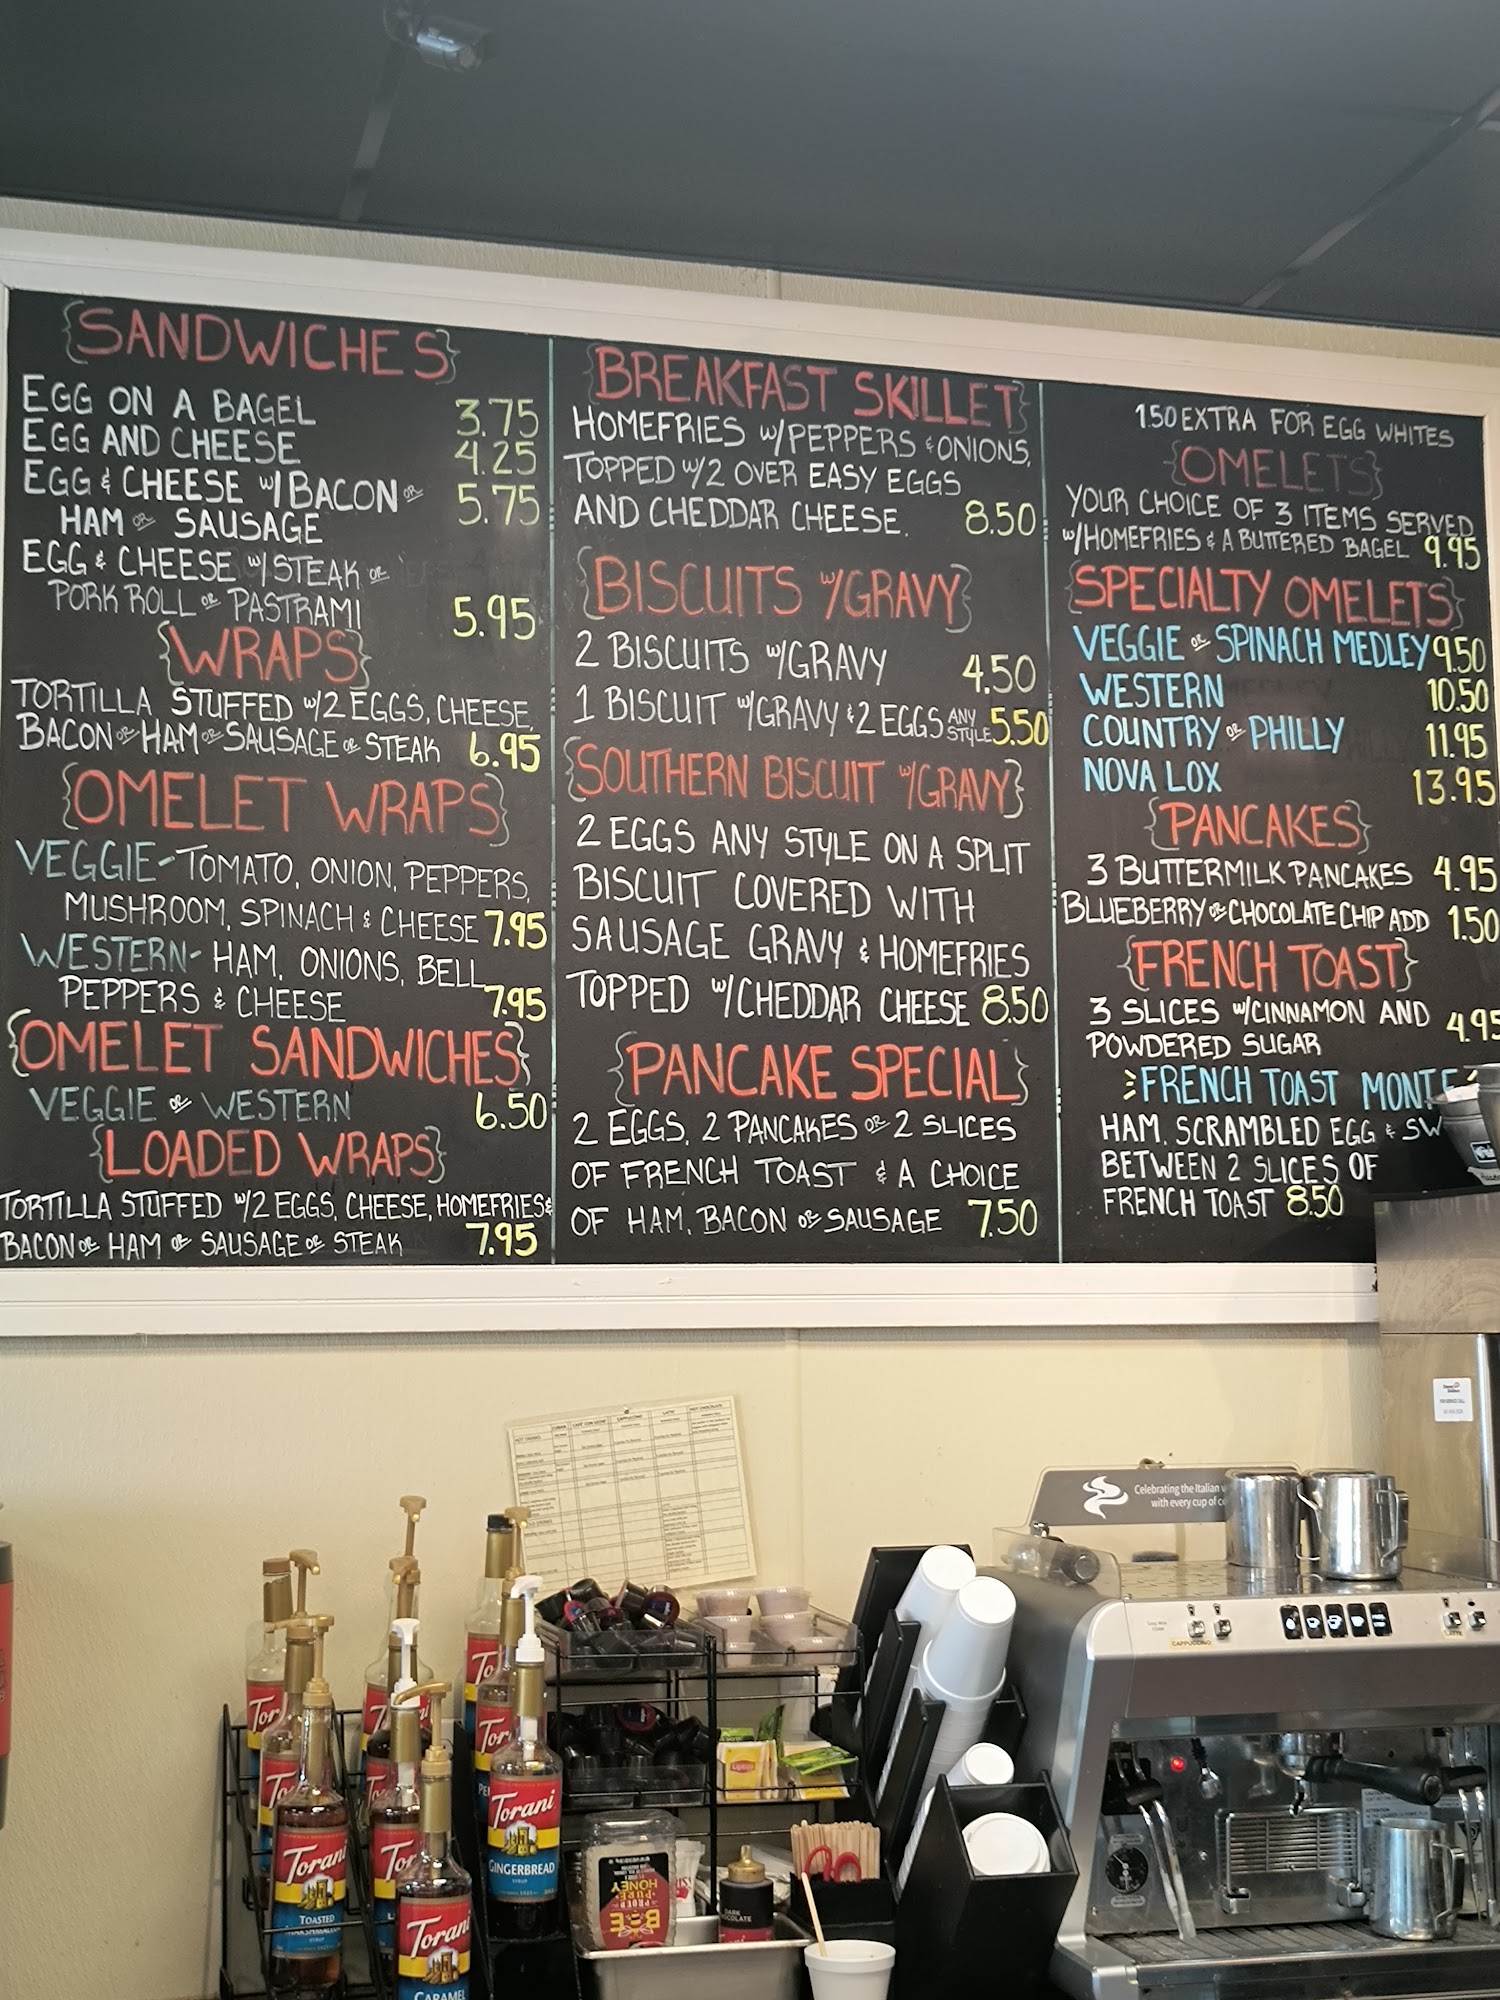 {SANDWICHES}
EGG ON A BAGEL 3.75
EGG AND CHEESE 4.25
EGG & CHEESE W/ BACON OR
HAM OR SAUSAGE 5.75
EGG & CHEESE W/ STEAK OR
PORK ROLL OR PASTRAMI 5.95
{WRAPS}
TORTILLA STUFFED W/2 EGGS, CHEESE,
BACON OR HAM OR SAUSAGE OR STEAK 6.95
{OMELET WRAPS}
VEGGIE-TOMATO, ONION, PEPPERS,
MUSHROOM, SPINACH & CHEESE 7.95
WESTERN- HAM, ONIONS, BELL
PEPPERS & CHEESE 7.95
{OMELET SANDWICHES}
VEGGIE OR WESTERN 6.50
{LOADED WRAPS}
TORTILLA STUFFED W/2 EGGS, CHEESE, HOMEFRIES &
BACON OR HAM OR SAUSAGE OR STEAK 7.95
{BREAKFAST SKILLET}
HOMEFRIES W/PEPPERS & ONIONS,
TOPPED W/2 OVER EASY EGGS
AND CHEDDAR CHEESE. 8.50
{BISCUITS W/GRAVY}
2 BISCUITS W/GRAVY 4.50
1 BISCUIT W/GRAVY & 2 EGGS ANY STYLE 5.50
{SOUTHERN BISCUIT W/GRAVY}
2 EGGS ANY STYLE ON A SPLIT
BISCUIT COVERED WITH
SAUSAGE GRAVY & HOMEFRIES
TOPPED W/CHEDDAR CHEESE 8.50
{PANCAKE SPECIAL}
2 EGGS, 2 PANCAKES OR 2 SLICES
OF FRENCH TOAST & A CHOICE
OF HAM, BACON OR SAUSAGE 7.50
1.50 EXTRA FOR EGG WHITES
{OMELETS}
YOUR CHOICE OF 3 ITEMS SERVED
W/HOMEFRIES & A BUTTERED BAGEL 9.95
{SPECIALTY OMELETS}
VEGGIE OR SPINACH MEDLEY 9.50
WESTERN 10.50
COUNTRY OR PHILLY 11.95
NOVA LOX 13.95
{PANCAKES}
3 BUTTERMILK PANCAKES 4.95
BLUEBERRY OR CHOCOLATE CHIP ADD 1.50
{FRENCH TOAST}
3 SLICES W/CINNAMON AND
POWDERED SUGAR 4.95
FRENCH TOAST MONTE
HAM, SCRAMBLED EGG & SW
BETWEEN 2 SLICES OF
FRENCH TOAST 8.50
Celebrating the Italian
with every cup of
CAPPUCCINO
LATTE
Torani
GINGERBREAD
SYRUP
Torani
TOASTED
Torani
CARAMEL
Lipton
BEE
PURE
HONEY
DARK
CHOCOLATE